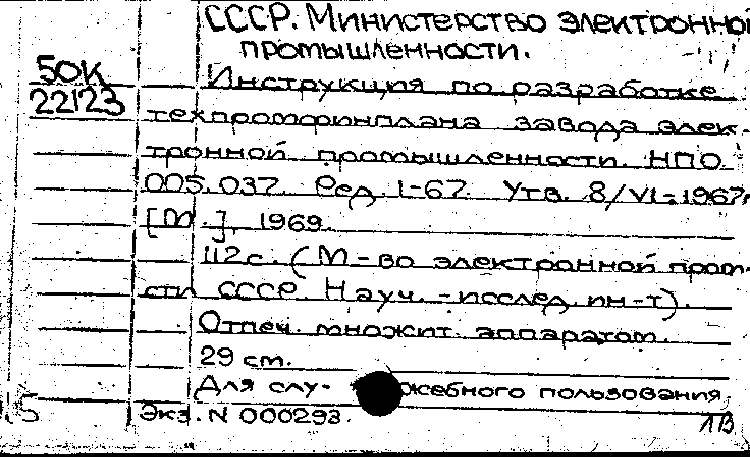 СССР. Министерство электронной
промышленности.
50К
22123
Инструкция по разработке
техпромфинплана завода элек-
тронной промышленности. НПО.
005.037. Ред. 1-67. Утв. 8/VI-1967.
[М.], 1969.
112 с. (М-во электронной пром-
сти СССР. Науч.-исслед. ин-т).
Отпеч. множит. аппаратом.
29 см.
Для слу- жебного пользования
Экз. N 000293.